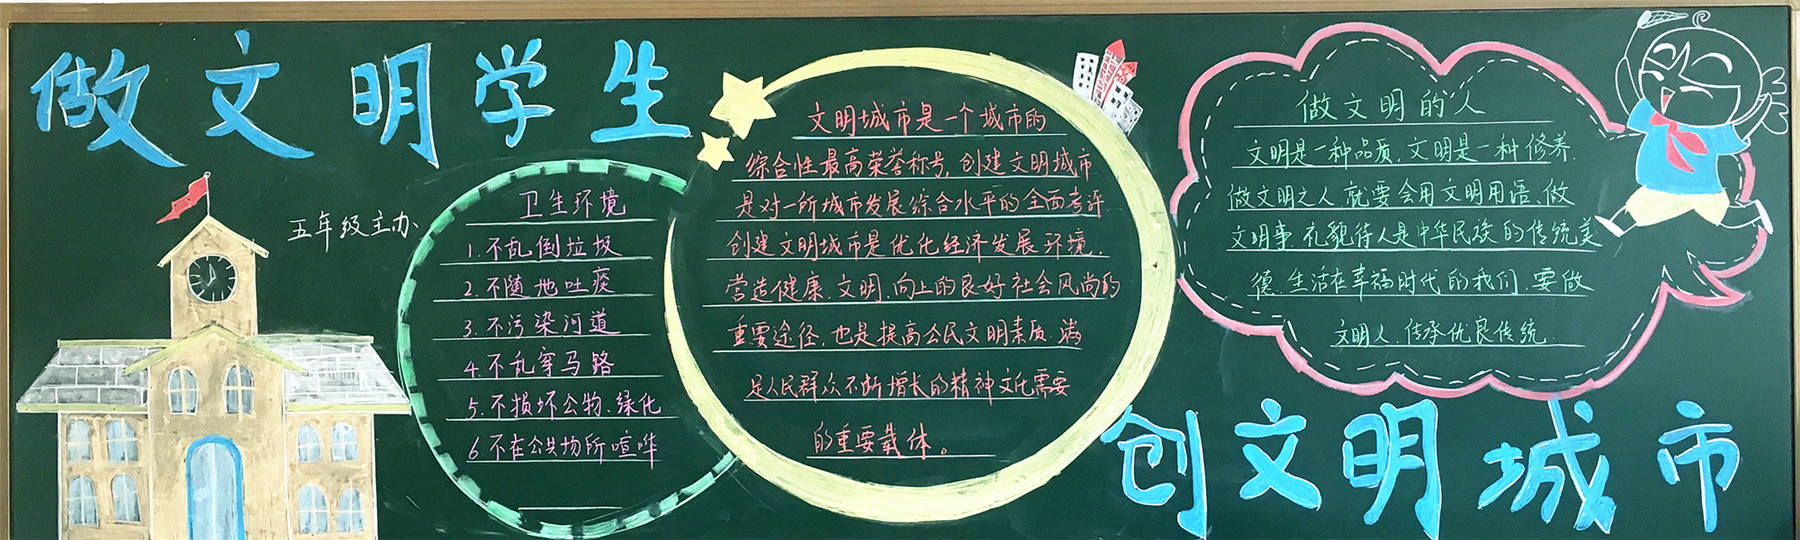 做文明学生
五年级主办
卫生环境
1.不乱倒垃圾
2.不随地吐痰
3.不污染河道
4.不乱穿马路
5.不损坏公物、绿化
6.不在公共场所喧哗
文明城市是一个城市的
综合性最高荣誉称号,创建文明城市
是对一所城市发展综合水平的全面考评
创建文明城市是优化经济发展环境.
营造健康.文明.向上的良好社会风尚的
重要途径,也是提高公民文明素质.满
足人民群众不断增长的精神文化需要
的重要载体。
做文明的人
文明是一种品质,文明是一种修养
做文明之人,就要会用文明用语、做
文明事.礼貌待人是中华民族的传统美
德.生活在幸福时代的我们.要做
文明人.传承优良传统.
创文明城市